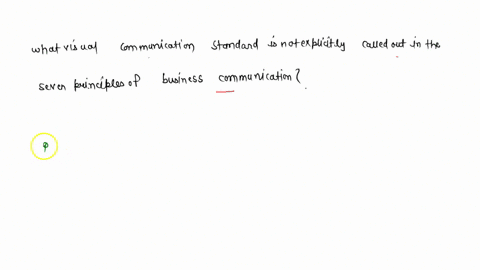 what visual communication standard is not explicitly called out in the
seven principles of business communication?